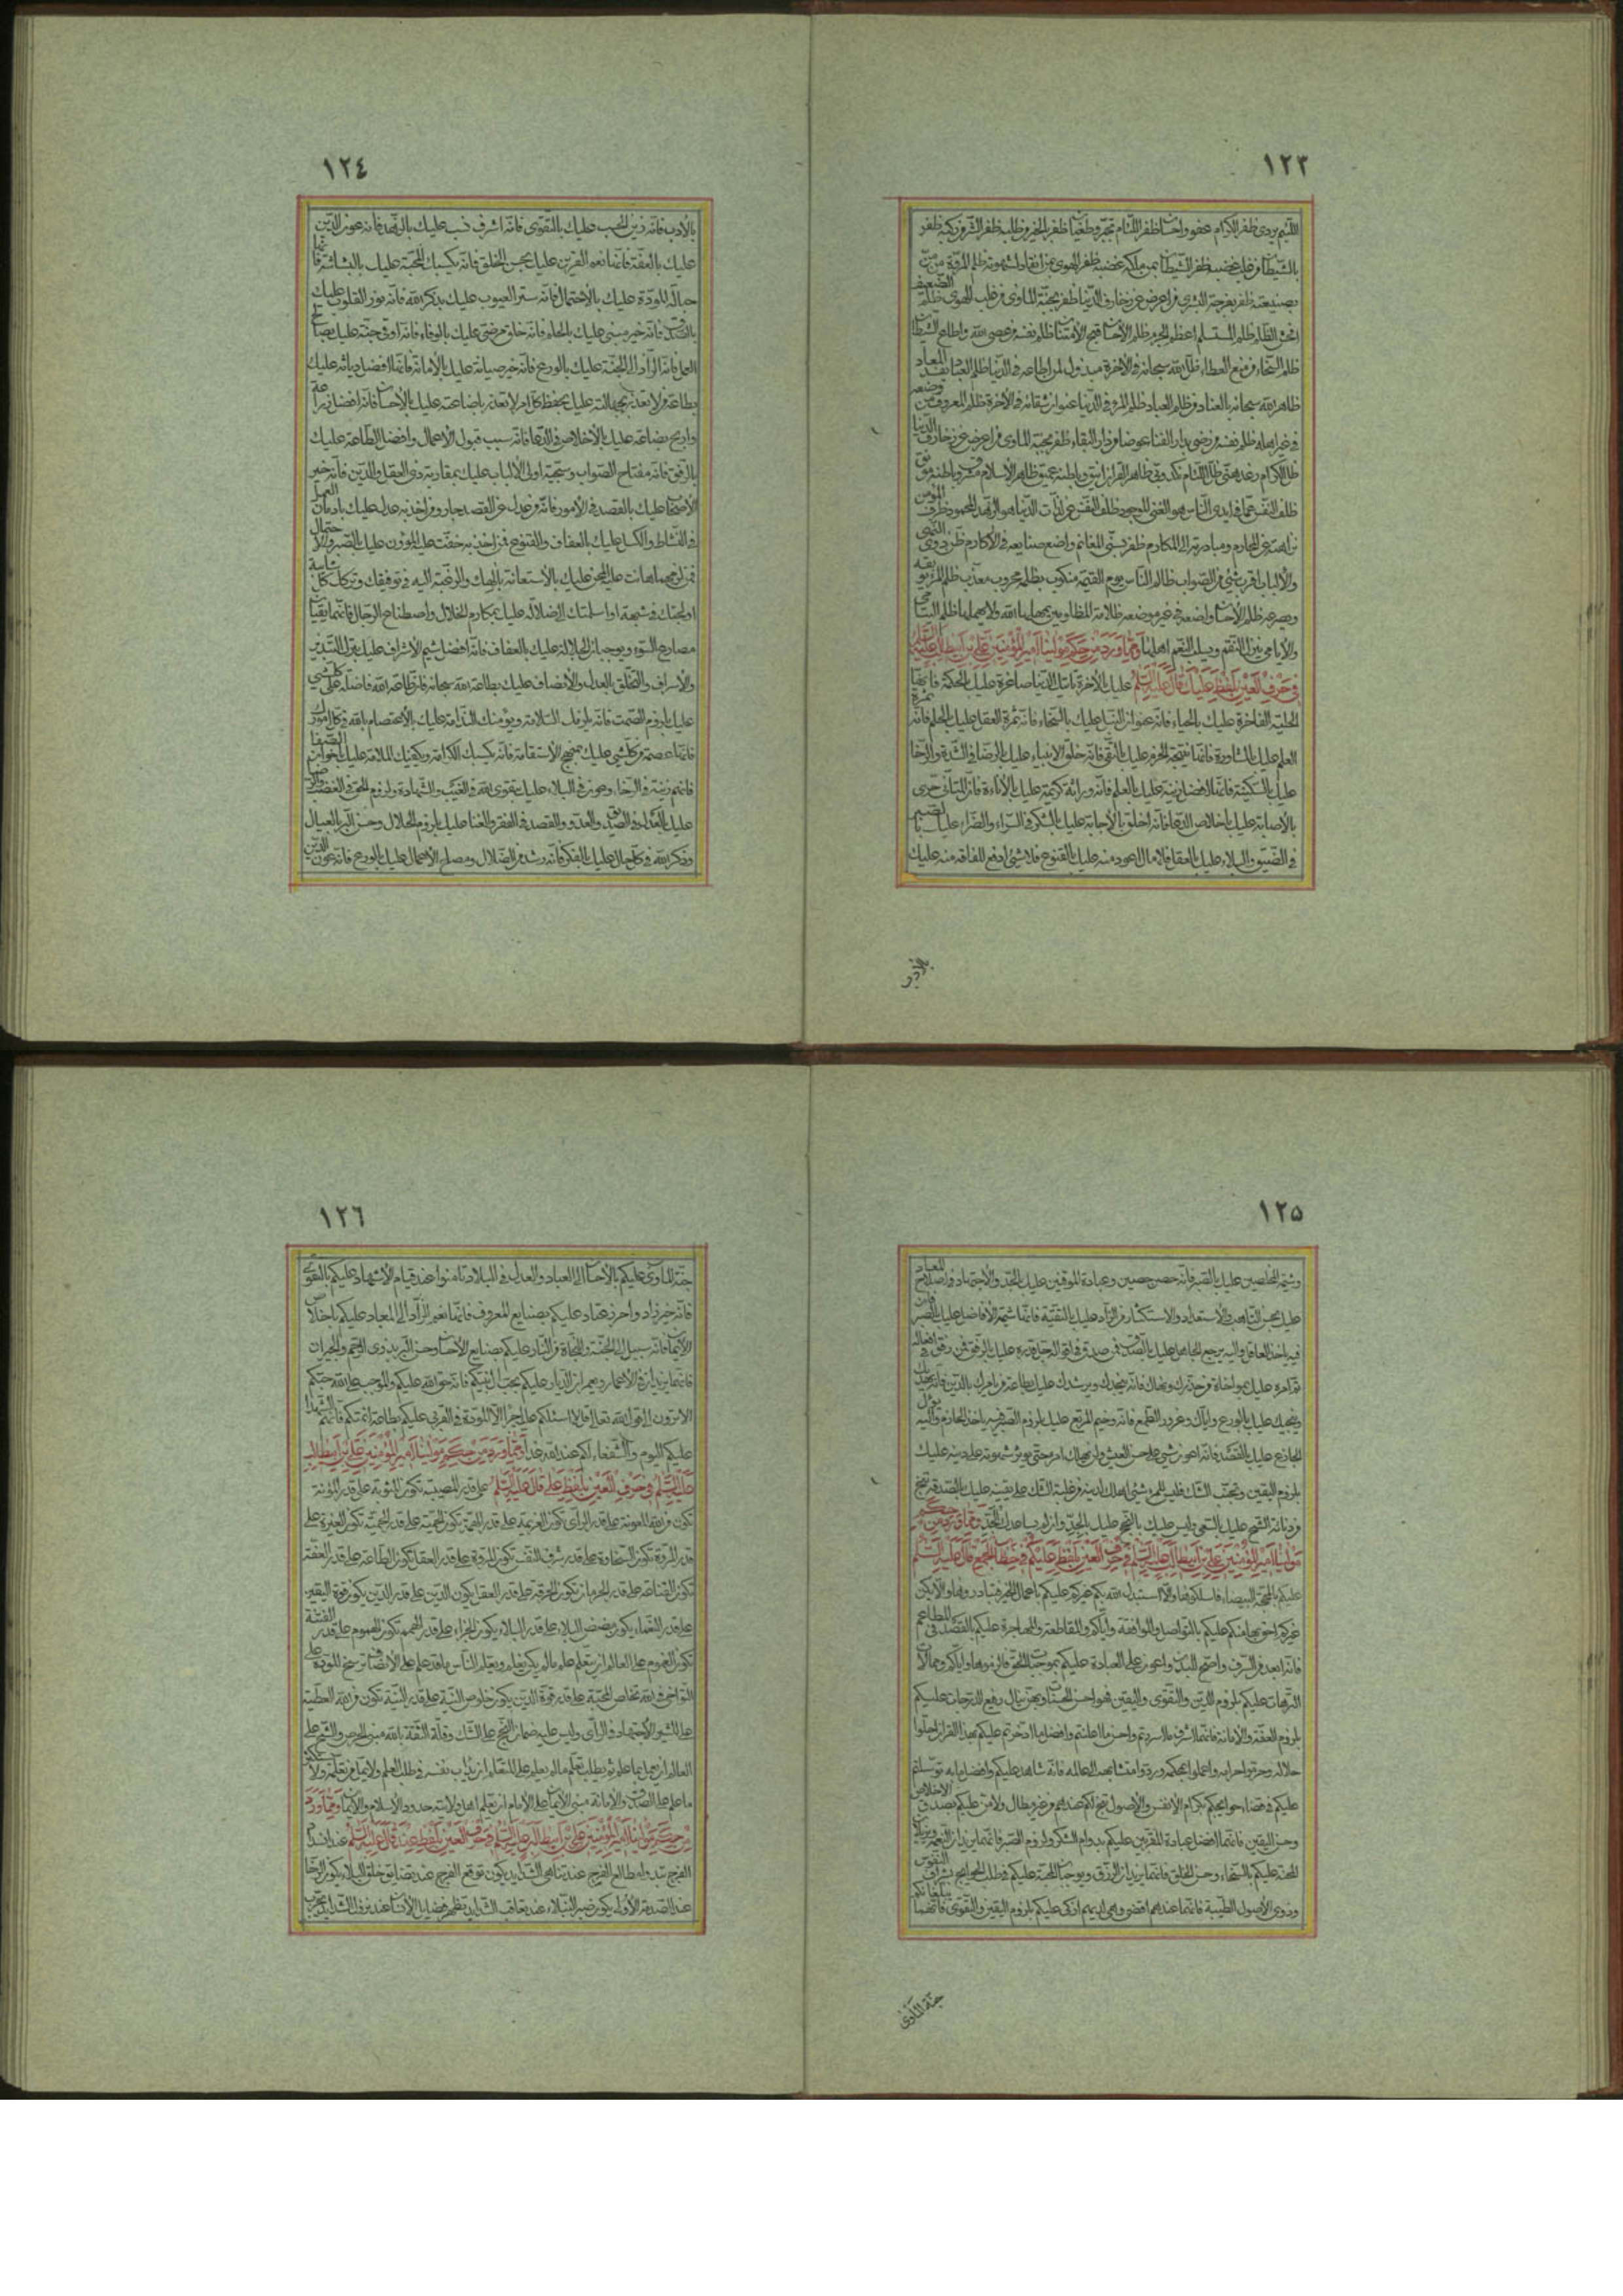 ١٢٣
اللئيم يردى ظفر الكرام عفو واحسان ظفر اللئام تجبر وطغيان ظفر بالخير من طلبه ظفر بالشر من ركبه ظفر
بالشيطان من غلب غضبه ظفر الشيطان بمن ملكه غضبه ظفر الهوى بمن انقاد لشهوته ظلم المروة من من
بصنيعته ظفر بفرحة البشرى من اعرض عن زخارف الدنيا ظفر بجنة المأوى من غلب الهوى ظلم الضعيف
افحش الظلم ظلم المستسلم اعظم الجرم ظلم الاحسان قبح الامتنان ظلم نفسه من عصى الله واطاع الشيطان
ظلم السخاء من منع العطاء ظل الله سبحانه فى الاخرة مبذول لمن اطاعه فى الدنيا ظلم العباد يفسد المعاد
ظاهر الله سبحانه بالعناد من ظلم العباد ظلم المرء فى الدنيا عنوان شقائه فى الاخرة ظلم المعروف من وضعه
فى غير اهله ظلم نفسه من رضى بدار الفناء عوضا من دار البقاء ظفر بجنة المأوى من اعرض عن زخارف الدنيا
ظل الكرام رغد هنى ظل اللئام نكد وبى ظاهر القران انيق وباطنه عميق ظاهر الاسلام مشرق وباطنه مونق
ظلف النفس عما فى ايدى الناس هو الغنى الموجود ظلف النفس عن لذات الدنيا هو الزهد المحمود ظرف المؤمن
نزاهته عن المحارم ومبادرته الى المكارم ظفر بسنى المغانم واضع صنايعه فى الاكارم ظن ذوى النهى
والالباب اقرب شئ من الصواب ظالم الناس يوم القيمة منكوب بظلمه محروب معذب ظلم المرء يوبقه
ويصرعه ظلم الاحسان واضعه فى غير موضعه ظلامة المظلومين يمهلها الله ولا يهملها ظلم اليتامى
والايامى ينزل النقم ويسلب النعم اهلها ومما ورد من حكم مولينا امير المؤمنين على بن ابيطالب عليه السلم
فى حرف العين بلفظ عليك قال عليه السلم عليك بالاخرة تأتك الدنيا صاغرة عليك بالحكمة فانها
الحلية الفاخرة عليك بالحياء فانه عنوان النبل عليك بالسخاء فانه ثمرة العقل عليك بالحلم فانه ثمرة
العلم عليك بالمشاورة فانها نتيجة الحزم عليك بالتقى فانه خلق الانبياء عليك بالرضا فى الشدة والرخا
عليك بالسكينة فانها افضل زينة عليك بالعلم فانه وراثة كريمة عليك بالاناءة فان المتأنى حرى
بالاصابة عليك باخلاص الدعا فانه اخلق بالاجابة عليك بالشكر فى السراء والضراء عليك بالصبر
فى الضيق والبلاء عليك بالعقل فلا مال اعود منه عليك بالقنوع فلا شئ ادفع للفاقه منه عليك
بالادب
١٢٤
بالادب فانه زين الحسب عليك بالتقوى فانه اشرف نسب عليك بالزهد فانه عون الدين
عليك بالعفة فانها نعم القرين عليك بحسن الخلق فانه يكسبك المحبة عليك بالبشاشة فانها
حبالة المودة عليك بالاحتمال فانه ستر العيوب عليك بذكر الله فانه نور القلوب عليك
بالصدق فانه خير مبنى عليك بالحلم فانه خلق مرضى عليك بالوفاء فانه اوقى جنة عليك بصالح
العمل فانه الزاد الى الجنة عليك بالورع فانه خير صيانة عليك بالامانة فانها افضل ديانة عليك
بطاعة من لا تعذر بجهالته عليك بحفظ كل امر لا تعذر باضاعته عليك بالاحسان فانه افضل زراعة
واربح بضاعة عليك بالاخلاص فى الدعا فانه سبب قبول الاعمال وافضل الطاعة عليك
بالرفق فانه مفتاح الصواب وسجية اولى الالباب عليك بمقاربة ذى العقل والدين فانه خير
الاصحاب عليك بالقصد فى الامور فانه من عدل عن القصد جار ومن اخذ به عدل عليك بادمان العمل
فى النشاط والكسل عليك بالعفاف والقنوع فمن اخذ به خفت عليه المؤون عليك بالصبر والاحتمال
فمن لزمهما هانت عليه المحن عليك بالاستعانة بالهك والرغبة اليه فى توفيقك وترك كل شائبة
اولجتك فى شبهة او اسلمتك الى ضلاله عليك بمكارم الخلال واصطناع الرجال فانهما يقيان
مصارع السوء ويوجبان الجلالة عليك بالعفاف فانه افضل شيم الاشراف عليك بترك التبذير
والاسراف والتخلق بالعدل والانصاف عليك بطاعة الله سبحانه فان طاعة الله فاضلة على كل شئ
عليك بلزوم الصمت فانه يلزمك السلامة ويؤمنك الندامة عليك بالاعتصام بالله فى كل امورك
فانها عصمة من كل شئ عليك بمنهج الاستقامة فانه يكسبك الكرامة ويكفيك الملامة عليك باخوان الصفا
فانهم زينة فى الرخاء وعون فى البلاء عليك بتقوى الله فى الغيب والشهادة ولزوم الحق فى الغضب والرضا
عليك بالعدل فى الصديق والعدو والقصد فى الفقر والغنا عليك بلزوم الحلال وحسن البر بالعيال
وذكر الله فى كل حال عليك بالفكر فانه رشد من الضلال ومصلح الاعمال عليك بالورع فانه عون الدين
١٢٥
وشيمة المخلصين عليك بالصبر فانه حصن حصين وعبادة الموقنين عليك بالجد والاجتهاد فى اصلاح المعاد
عليك بحسن التاهب والاستعداد والاستكثار من الزاد عليك بالتقية فانها شيمة الافاضل عليك بالصبر فان
فيه ياخذ العاقل واليه يرجع الجاهل عليك بالصدق فمن صدق فى اقواله جل قدره عليك بالرفق فمن رفق فى افعاله
تم امره عليك بمواخاة من حذرك ونهاك فانه ينجدك ويرشدك عليك بطاعة من يأمرك بالدين فانه يهديك
وينجيك عليك بالورع واياك وغرور الطمع فانه وخيم المرتع عليك بلزوم الصبر فبه ياخذ الحازم واليه يؤل
الجازع عليك بالقصد فانه اعون شئ على حسن العيش ولن يهلك امرء حتى يؤثر شهوته على دينه عليك
بلزوم اليقين وتجنب الشك فليس للمرء شئ اهلك لدينه من غلبة الشك على يقينه عليك بالصدقة تنج
من دنائة الشح عليك بالسعى وليس عليك بالنجح عليك بالجد وان لم يساعدك الجد ومما ورد من حكم
مولينا امير المؤمنين على بن ابيطالب عليه السلم فى حرف العين بلفظ عليكم فى خطاب الجمع قال عليه السلم
عليكم بالمحجة البيضاء فاسلكوها والا استبدل الله بكم غيركم عليكم باعمال الخير فتبادروها ولا يكن
غيركم احق بها منكم عليكم بالتواصل والموافقة واياكم والمقاطعة والمهاجرة عليكم بالقصد فى المطاعم
فانه ابعد من السرف واصح للبدن واعون على العبادة عليكم بموجبات الحق فالزموها واياكم ومحالات
الترهات عليكم بلزوم الدين والتقوى واليقين فهن احسن الحسنات وبهن ينال رفيع الدرجات عليكم
بلزوم العفة والامانة فانهما اشرف ما اسررتم واحسن ما اعلنتم وافضل ما ادخرتم عليكم بهذا القران احلوا
حلاله وحرموا حرامه واعملوا بمحكمه وردوا متشابهه الى عالمه فانه شاهد عليكم وافضل ما به توسلتم
عليكم فى قضاء حوائجكم بكرام الانفس والاصول تنجح لكم عندهم من غير مطال ولا من عليكم بصدق الاخلاص
وحسن اليقين فانهما افضل عبادة المقربين عليكم بدوام الشكر ولزوم الصبر فانهما يزيدان النعمة ويزيلان
المحنة عليكم بالسخاء وحسن الخلق فانهما يزيدان الرزق ويوجبان المحبة عليكم فى طلب الحوايج بشراف النفوس
وذوى الاصول الطيبة فانها عندهم اقضى وهى لديهم ازكى عليكم بلزوم اليقين والتقوى فانهما يبلغانكم
جنة المأوى
١٢٦
جنة المأوى عليكم بالاحسان الى العباد والعدل فى البلاد تأمنوا عند قيام الاشهاد عليكم بالتقوى
فانه خير زاد واحرز عتاد عليكم بصنايع المعروف فانها نعم الزاد الى المعاد عليكم باخلاص
الايمان فانه سبيل الى الجنة والنجاة من النار عليكم بصنايع الاحسان وحسن البر بذوى الرحم والجيران
فانهما يزيدان فى الاعمار ويعمران الديار عليكم بحب ال نبيكم فانه حق الله عليكم والموجب على الله حبكم
الا ترون الى قول الله تعالى قل لا اسئلكم عليه اجرا الا المودة فى القربى عليكم بطاعة ائمتكم فانهم الشهداء
عليكم اليوم والشفعاء لكم عند الله غدا ومما ورد من حكم مولينا امير المؤمنين على بن ابيطالب
عليه السلم فى حرف العين بلفظ على قال عليه السلم على قدر المصيبة تكون المثوبة على قدر المؤنة
تكون من الله المعونة على قدر الراى تكون العزيمة على قدر الهمة تكون الحمية على قدر الحمية تكون الغيرة على
قدر المروة تكون السخاوة على قدر شرف النفس تكون المروة على قدر العقل تكون الطاعة على قدر العفة
تكون القناعة على قدر الحرمان تكون الحرقة على قدر العقل يكون الدين على قدر الدين يكون قوة اليقين
على قدر النعماء يكون مضض البلاء على قدر البلاء يكون الجزاء على قدر الهمم تكون الهموم على قدر القنية
تكون الغموم على العالم ان يتعلم علم ما لم يكن يعلم ويعلم الناس ما قد علم على الانصاف ترسخ المودة على
التواخى فى الله تخلص المحبة على قدر قوة الدين يكون خلوص النية على قدر النية تكون من الله العطية
على المشير الاجتهاد فى الراى وليس عليه ضمان النجح على الشك وقلة الثقة بالله مبنى الحرص والشح على
العالم ان يعمل بما علم ثم يطلب تعلم ما لم يعلم على المتعلم ان يدأب نفسه فى طلب العلم ولا يمل من تعلمه ولا يستكثر
ما علم على الصدق والامانة مبنى الايمان على الامام ان يعلم اهل ولايته حدود الاسلام والايمان ومما ورد
من حكم مولينا امير المؤمنين على بن ابيطالب عليه السلم فى حرف العين بلفظ عند قال عليه السلم عند انسداد
الفرج تبدو مطالع الفرج عند تناهى الشدايد يكون توقع الفرج عند تضايق حلق البلاء يكون الرخا
عند الصدمة الاولى يكون صبر النبلاء عند تعاقب الشدايد تظهر فضايل الانسان عند نزول الشدايد يجرب